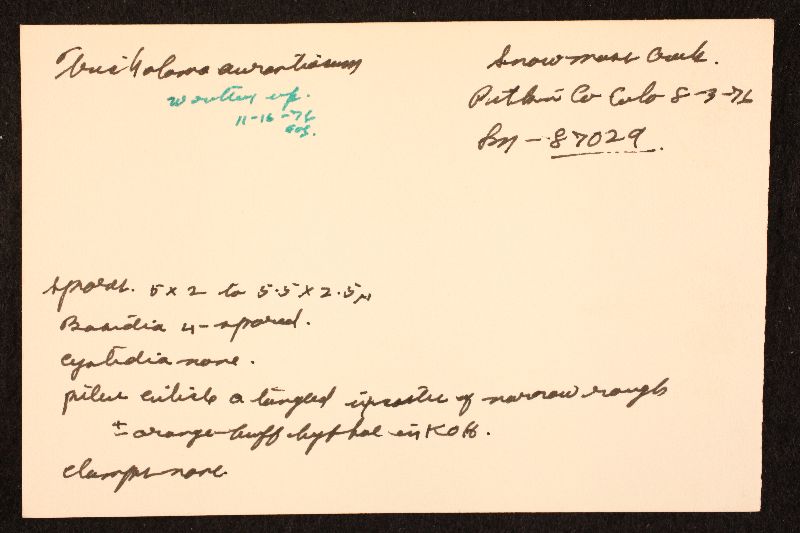 Tricholoma aurantiacum
written up.
11-16-76
Snowmass Creek.
Pitkin Co Colo 8-3-76
Sm - 87029.
spores. 5 x 2 to 5.5 x 2.5 µ
Basidia 4-spored.
cystidia none.
pileus cuticle a tangled of narrow rough
± orange-buff hyphae in KOH.
clamps none